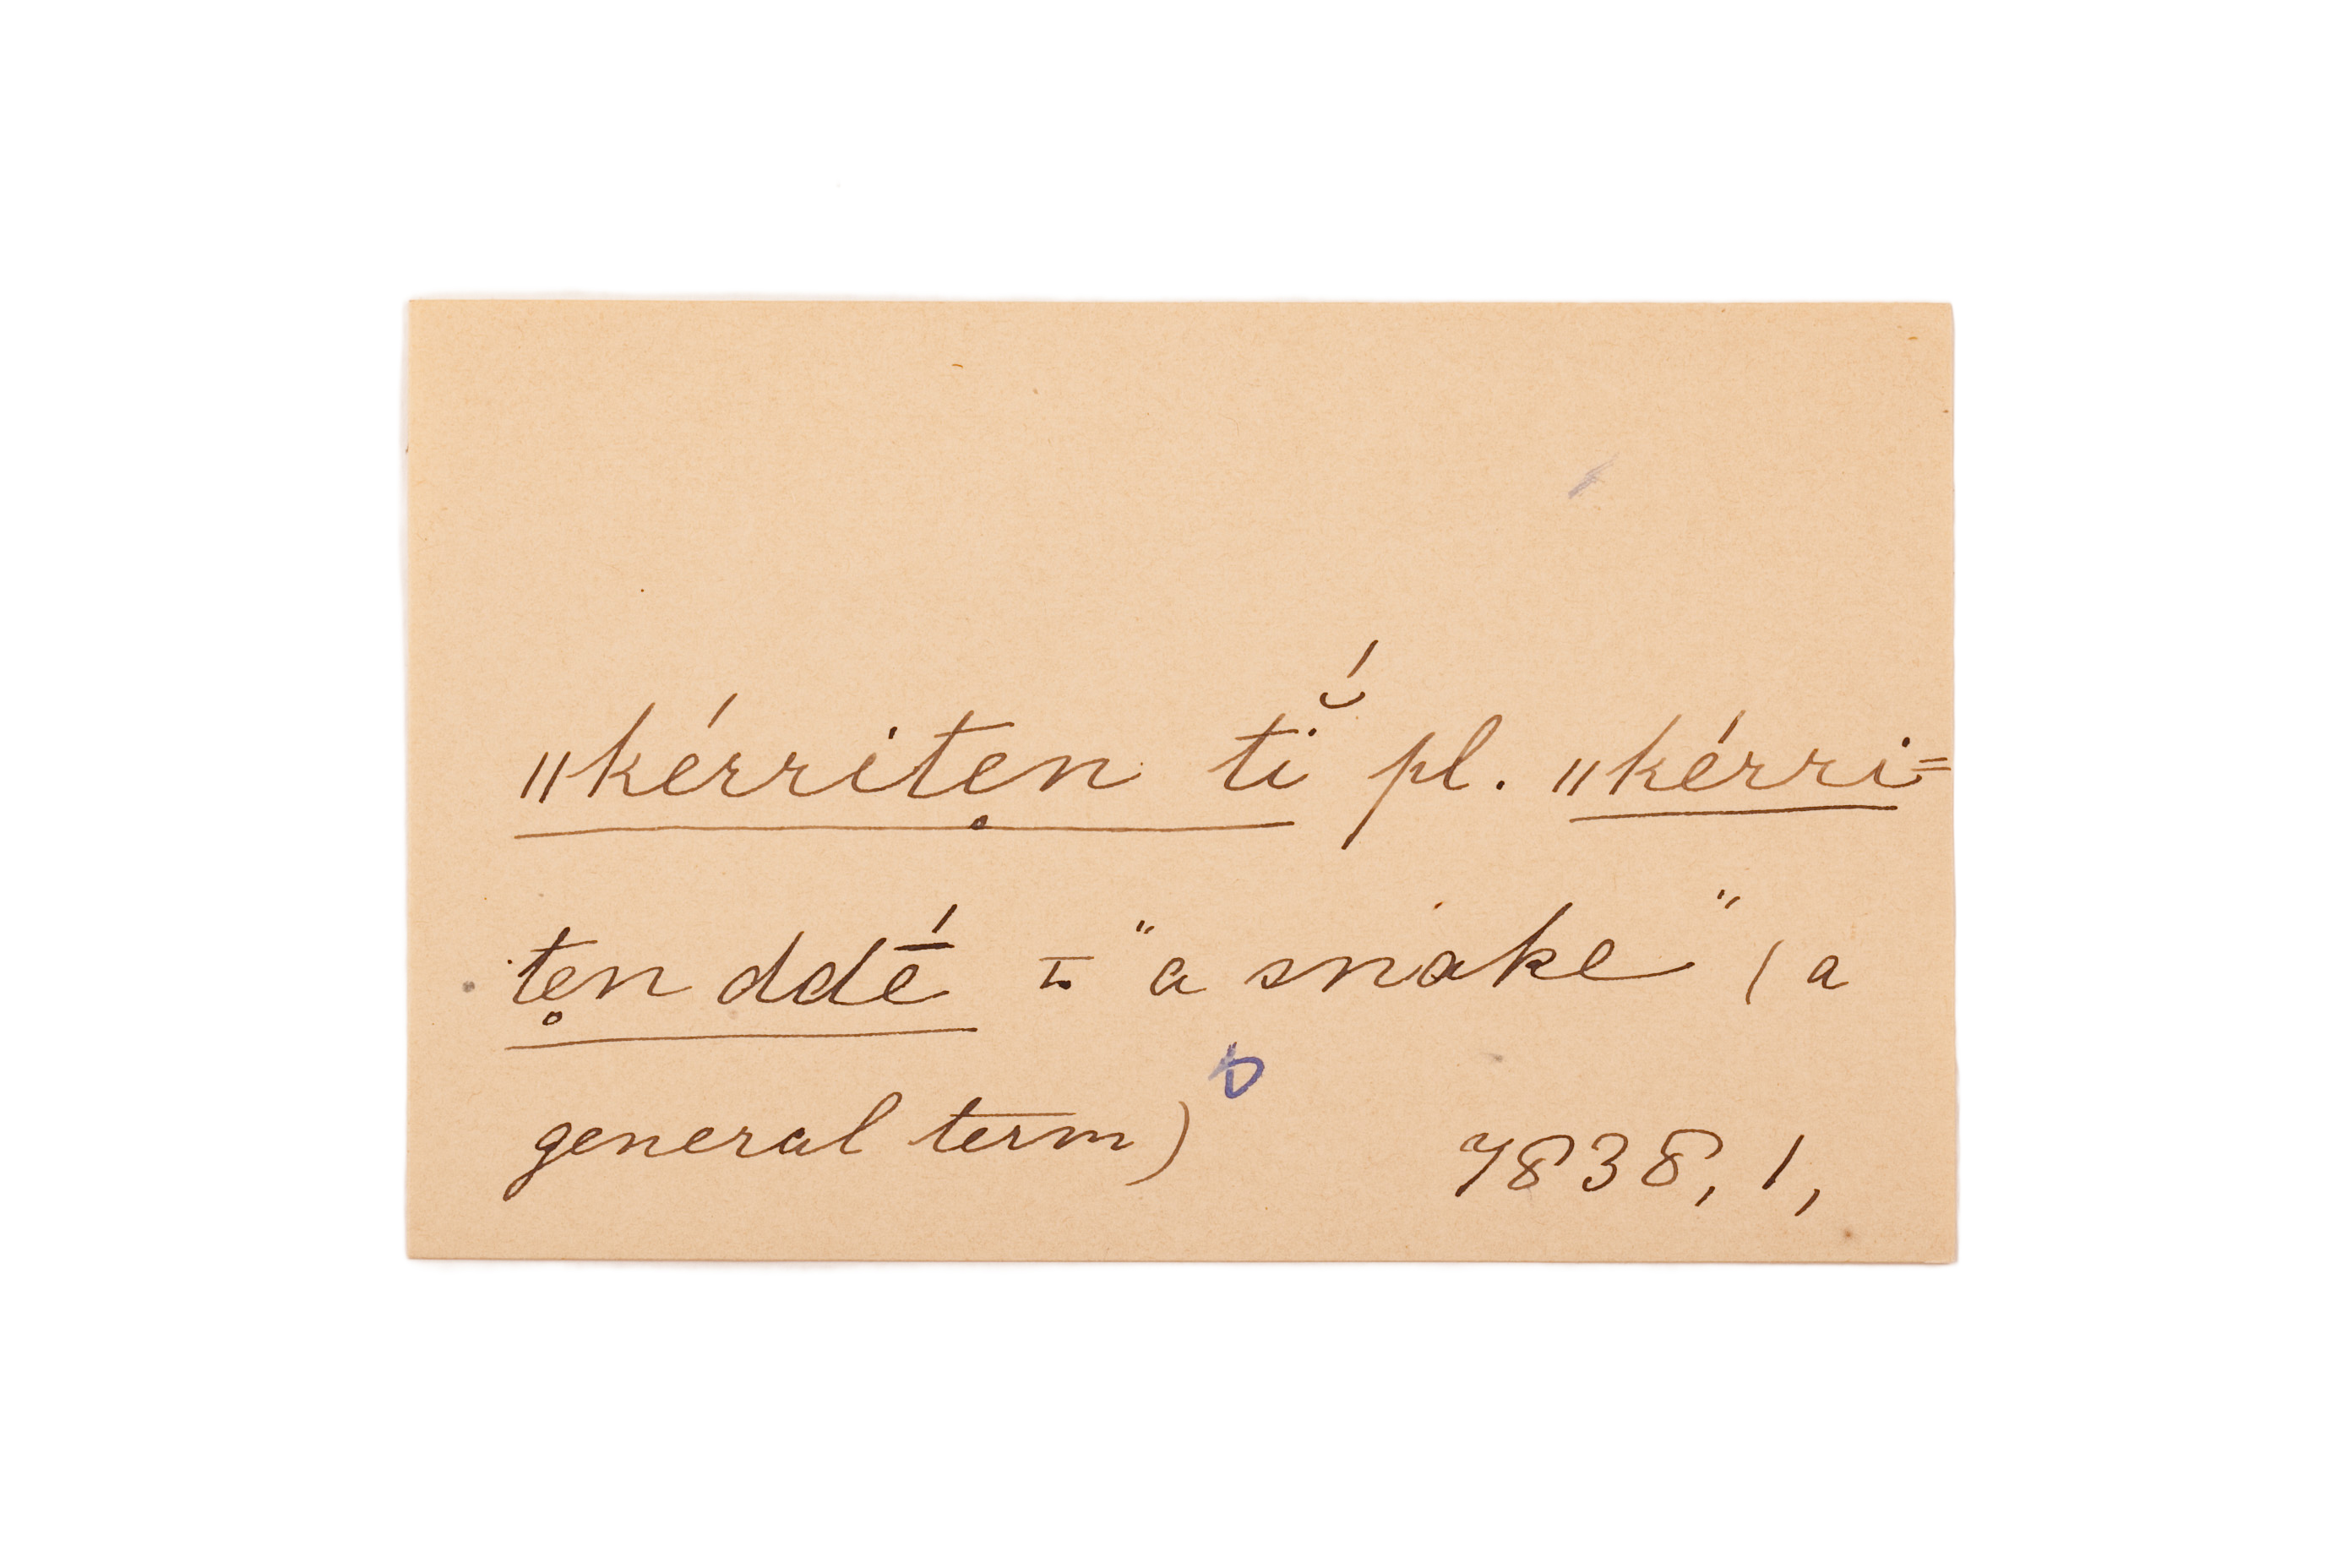 ǁkérrite̥n tĭ́ pl. ǁkérri=
te̥n ddḗ = "a snake" (a
general term)
7838, 1,